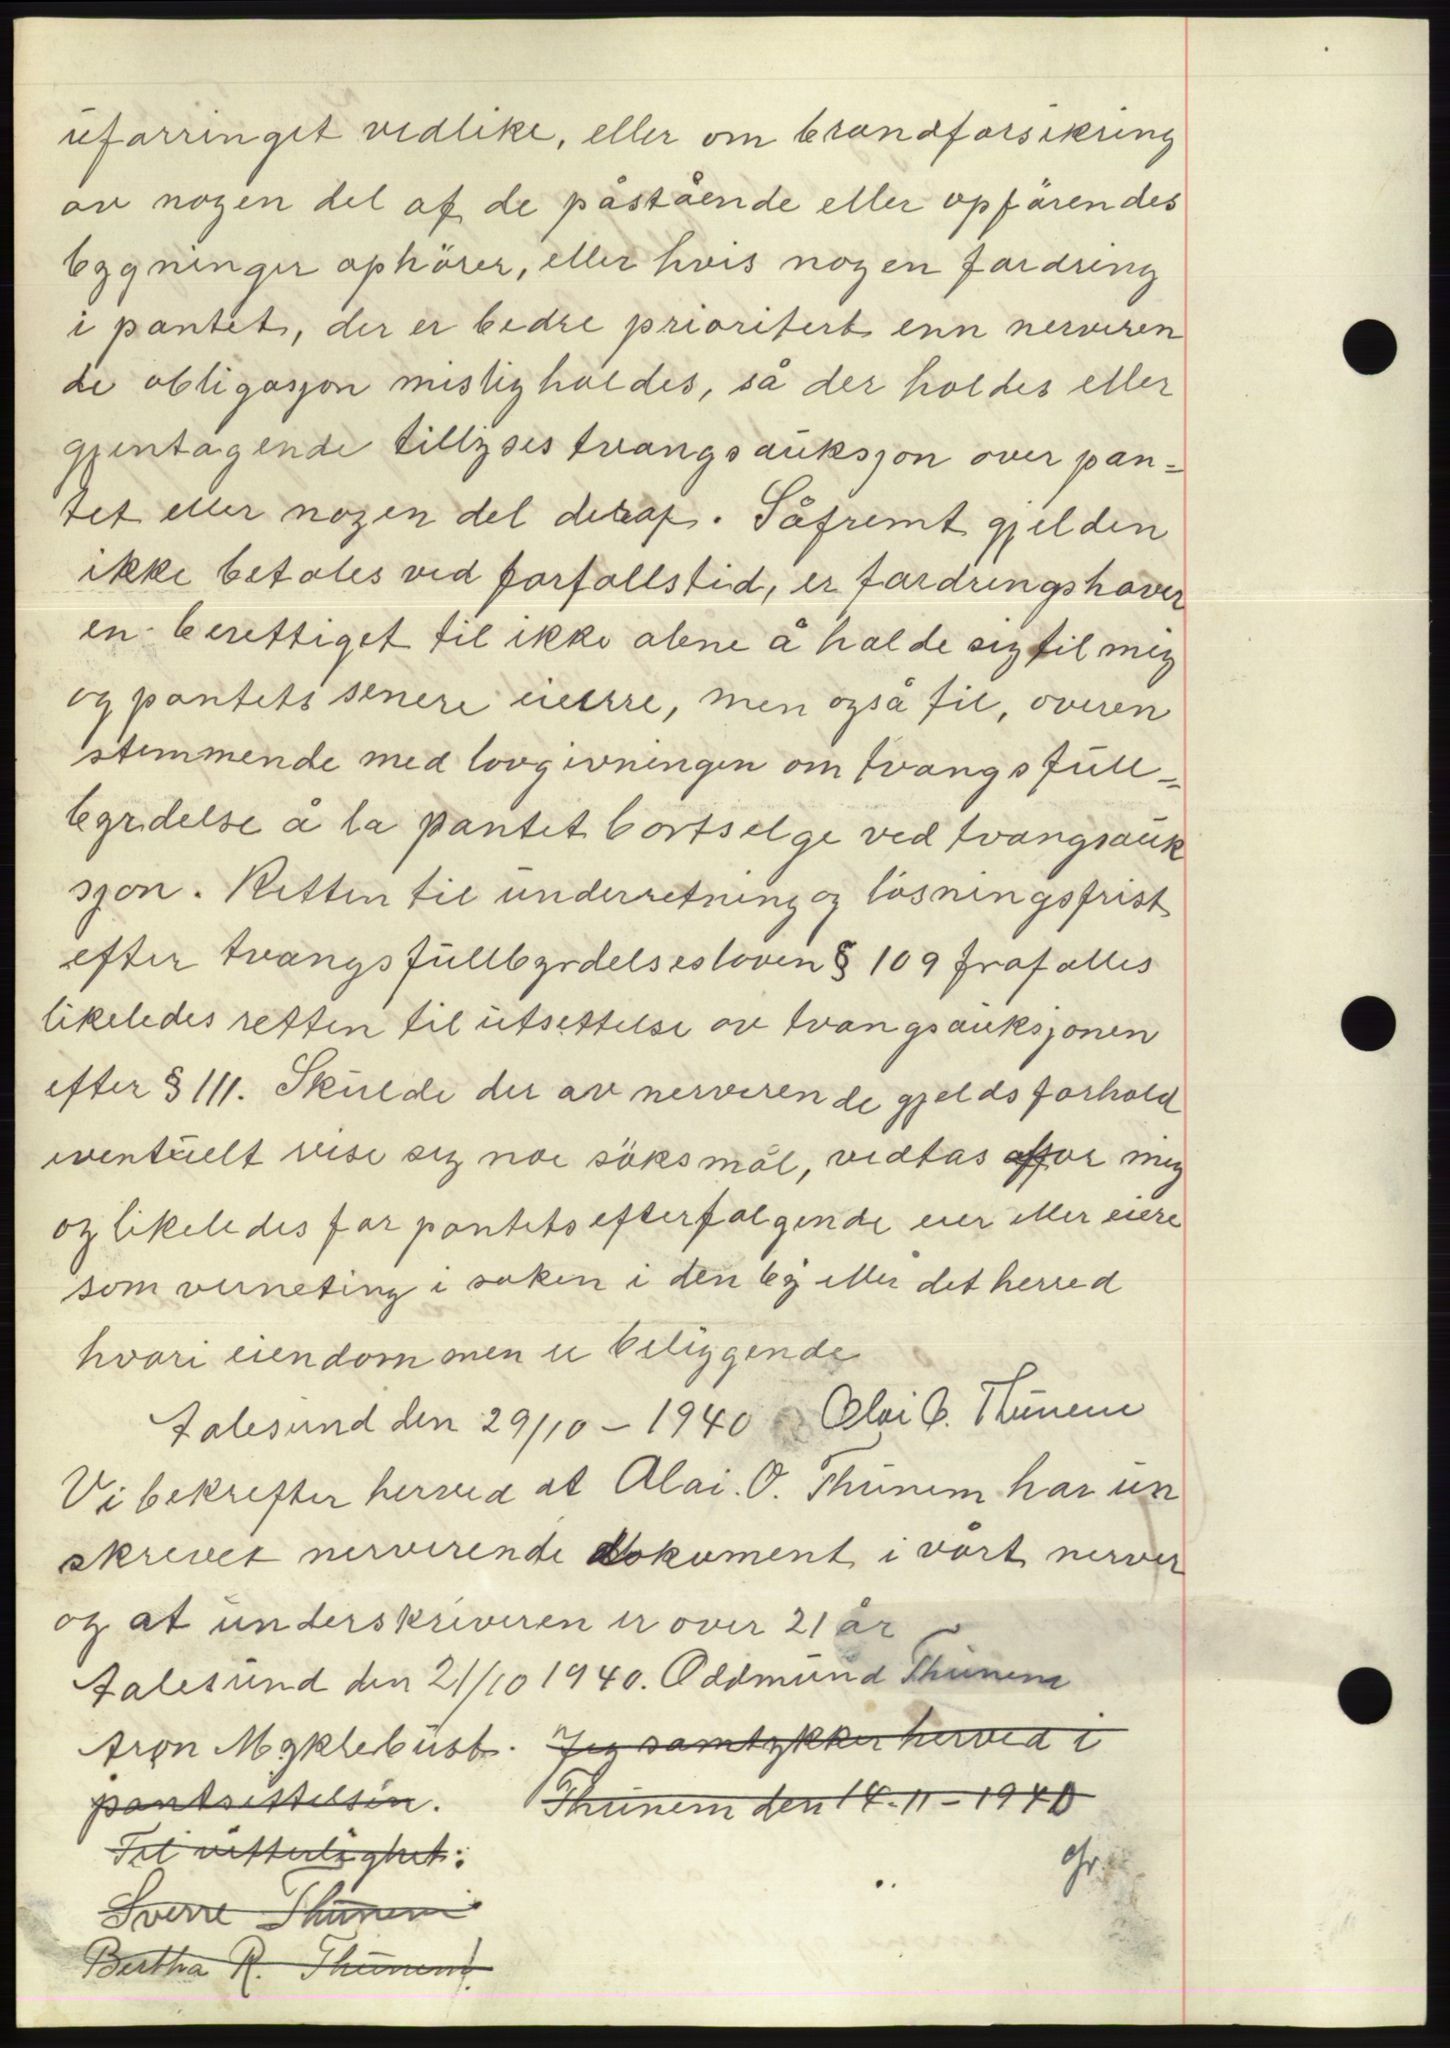 uforringet vedlike, eller om brandforsikring
av nogen del af de påstående eller opförendes
bygninger ophörer, eller hvis nogen fordring
i pantet, der er bedre prioritert enn nerveren
de obligasjon misligholdes, så der holdes eller
gjentagende tillyses tvangsauksjon over pan=
tet eller nogen del deraf. Såfremt gjelden
ikke betales ved forfallstid, er fordringshaver
en berettiget til ikke alene å holde sig til mig
og pantets senere eiere, men også til, overen
stemmende med lovgivningen om tvangsfull=
byrdelse å la pantet bortselge ved tvangsauk
sjon. Retten til underretning og lösningsfrist
efter tvangsfullbyrdelsesloven § 109 frafalles
likeledes retten til utsettelse av tvangsauksjonen
efter § 111. Skulde der av nerverende gjeldsforhold
eventuelt reise sig noe söksmål, vedtas for mig
og likeledes for pantets efterfolgende eier eller eiere
som verneting i saken i den by eller det herred
hvori eiendommen er beliggende
Aalesund den 29/10 – 1940 Olai O. Thunem
Vi bekrefter herved at Olai. O. Thunem har un
skrevet nerverende dokument i vårt nerver
og at underskriveren er over 21 år
Aalesund den 21/10 1940. Oddmund Thunem
Aron Myklebust. Jeg samtykker herved i
pantsettelsen. Thunem den 14-11-1940
Til vitterlighet:
Sverre Thunem
Bertha R. Thunem